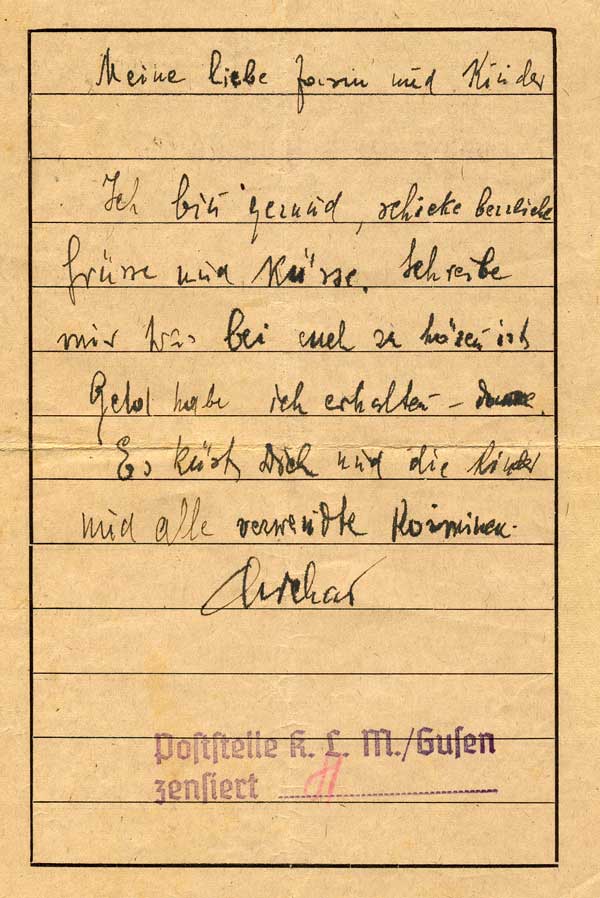 Meine liebe Frau und Kinder
Ich bin gesund, schicke herzliche
Grüsse und Küsse. Schreibe
mir was bei euch zu hören ist
Geld habe ich erhalten –
Es küsst Dich und die Kinder
und alle verwendte
Poststelle K. L. M./Gusen
zensiert